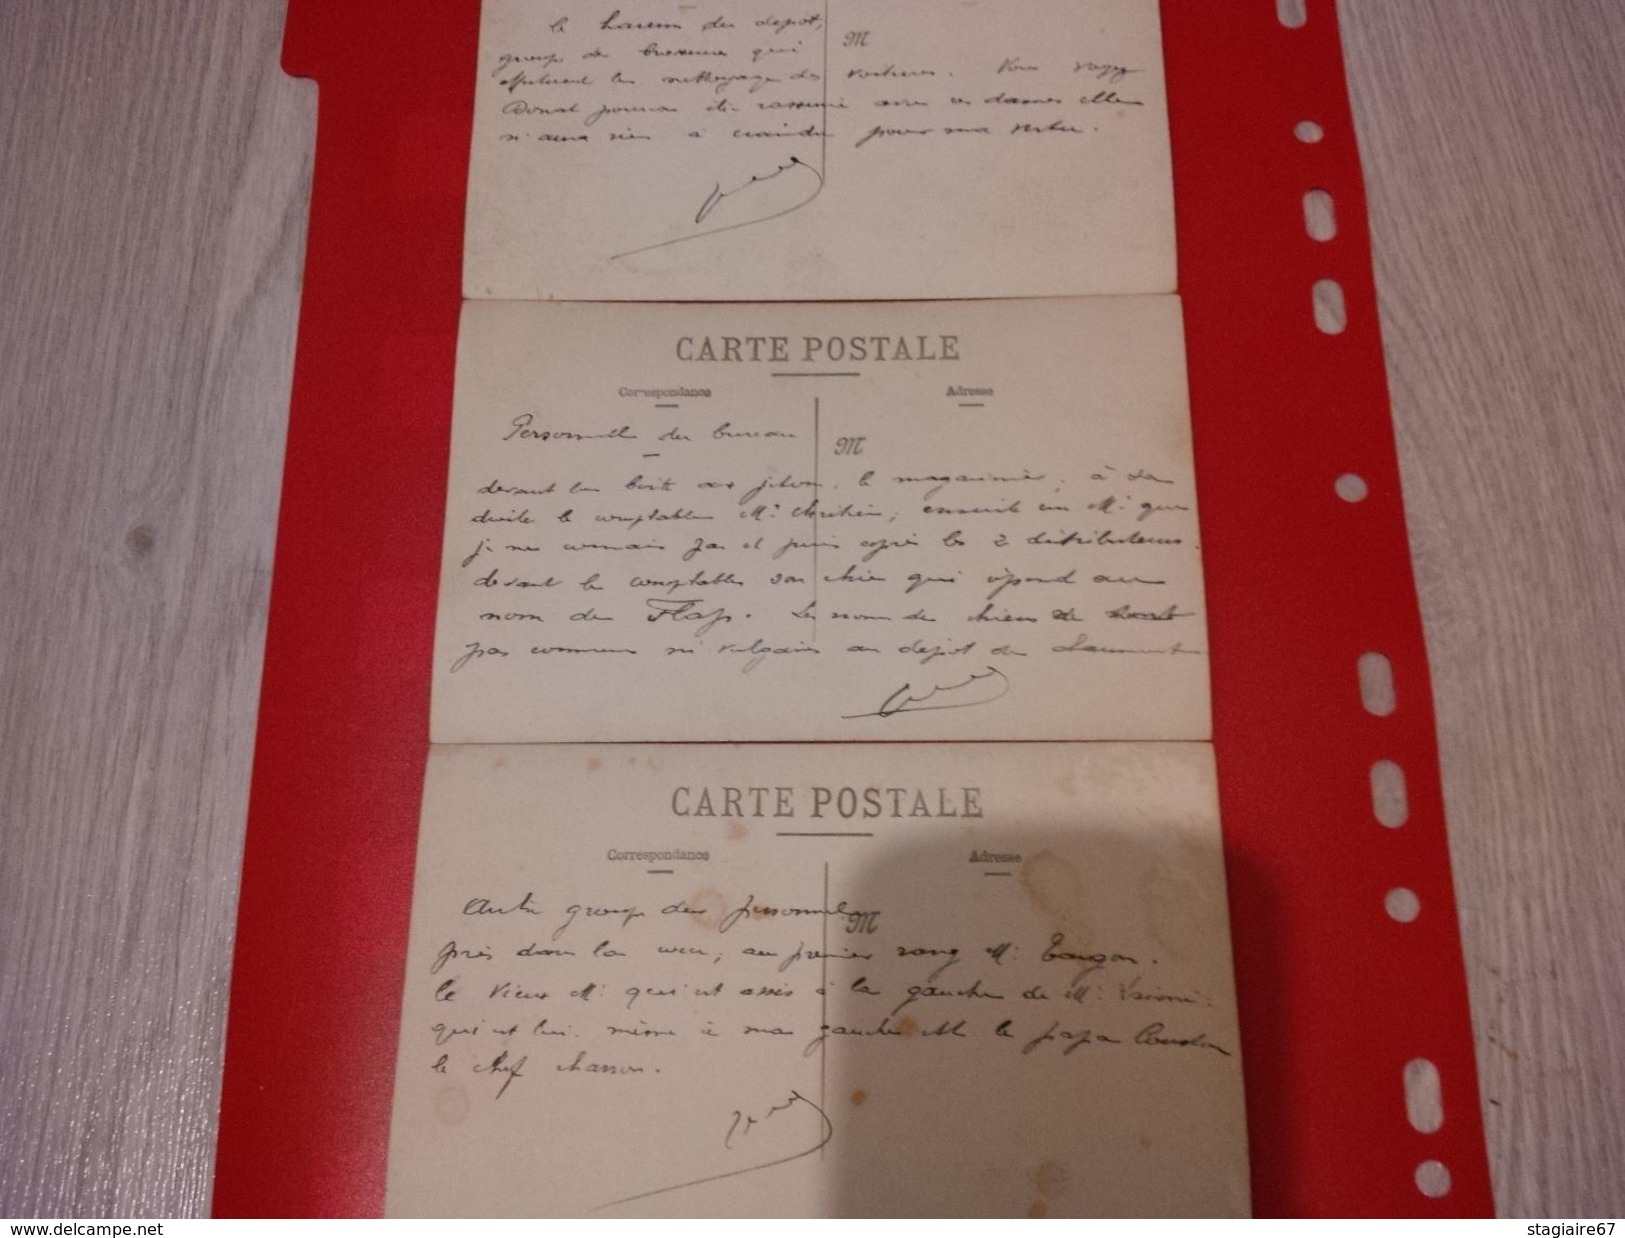 le harem du depot,
groupe de
M
effectuent le nettoyage des voitures. Vous voyez
Donat pourra être rassurée avec ces dames elle
n'aura rien à craindre pour ma vertu.
CARTE POSTALE
Correspondance Adresse
Personnel du bureau
M
devant la boite aux jetons, le magasinier, à sa
droite le comptable Mr Chrétien, ensuite un Mr que
je ne connais pas et puis après les 2 distributeurs.
devant le comptable son chien qui répond au
nom de Flap. Les noms de chiens ne sont
pas communs ni vulgaires au dépot de
CARTE POSTALE
Correspondance Adresse
Autre groupe du personnel
M
pris dans la cour, au premier rang Mr Tangon.
le vieux Mr qui est assis à la gauche de Mr
qui est lui-même à ma gauche est le papa
le chef charron.
www.delcampe.net
stagiaire67